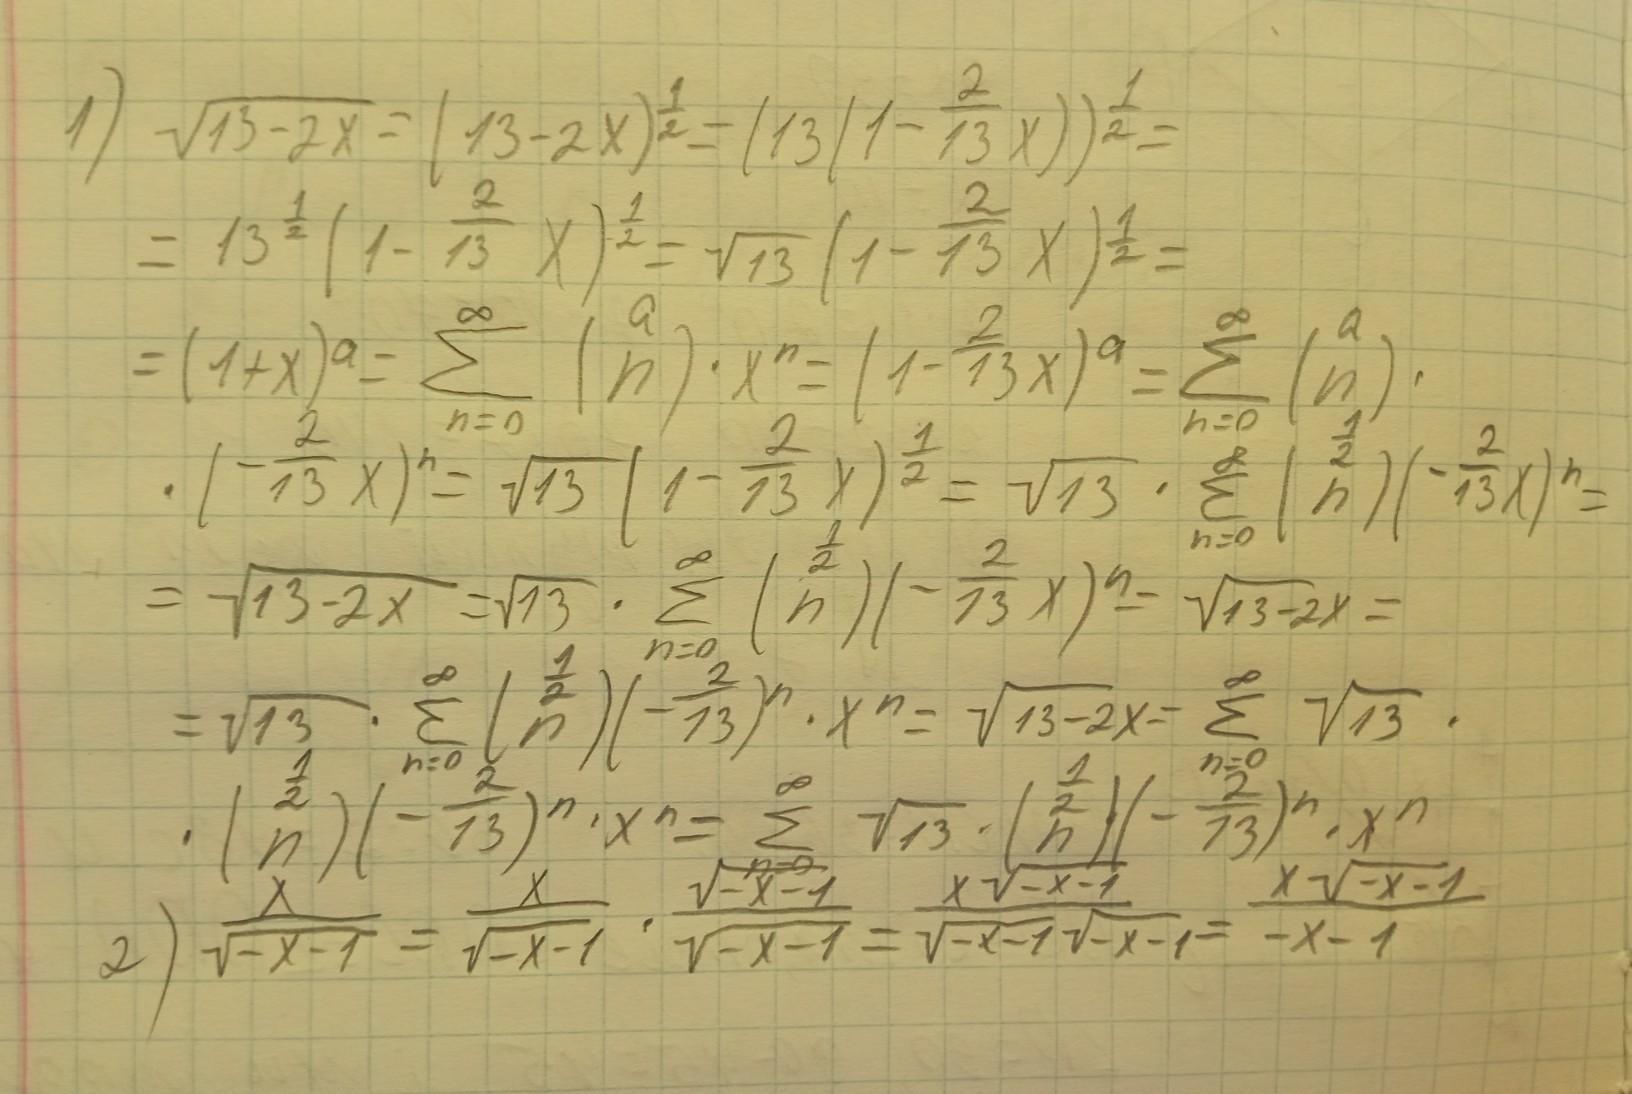 1) √(13-2x) = (13-2x)^(1/2) = (13(1-2/13 x))^(1/2) =
= 13^(1/2) (1-2/13 x)^(1/2) = √13 (1-2/13 x)^(1/2) =
= (1+x)^a = ∑_{n=0}^{∞} (a n)·x^n = (1-2/13 x)^a = ∑_{n=0}^{∞} (a n)·
·(-2/13 x)^n = √13 (1-2/13 x)^(1/2) = √13 · ∑_{n=0}^{∞} (1/2 n)(-2/13 x)^n =
= √(13-2x) = √13 · ∑_{n=0}^{∞} (1/2 n)(-2/13 x)^n = √(13-2x) =
= √13 · ∑_{n=0}^{∞} (1/2 n)(-2/13)^n · x^n = √(13-2x) = ∑_{n=0}^{∞} √13 ·
·(1/2 n)(-2/13)^n · x^n = ∑_{n=0}^{∞} √13 · (1/2 n)(-2/13)^n · x^n
2) x/√(-x-1) = x/√(-x-1) · √(-x-1)/√(-x-1) = x√(-x-1)/(√(-x-1) √(-x-1)) = x√(-x-1)/(-x-1)